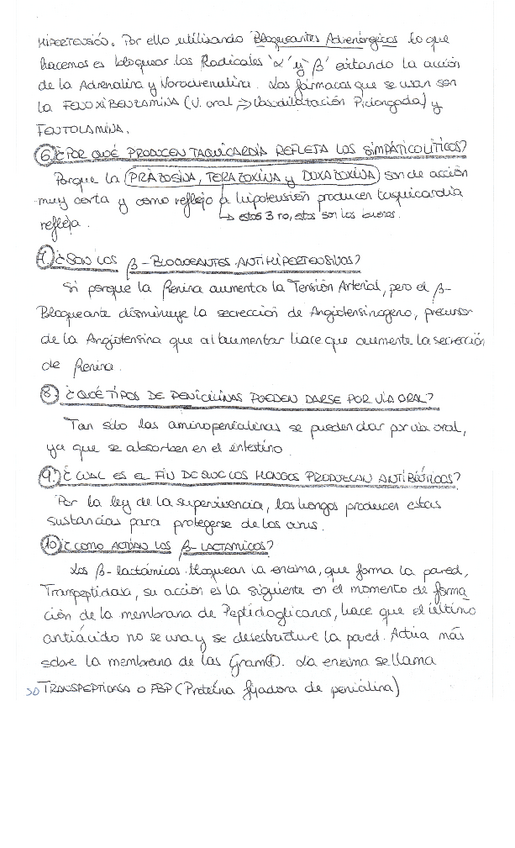 HIPERTENSIÓN. Por ello utilizando Bloqueantes Adrenérgicos lo que
hacemos es bloquear los Radicales 'α' y 'β' evitando la acción
de la Adrenalina y Noradrenalina. Los fármacos que se usan son
la FENOXIBENZAMINA (V. oral => Vasodilatación Prolongada) y
FENTOLAMINA.
6. ¿POR QUÉ PRODUCEN TAQUICARDIA REFLEJA LOS SIMPÁTICOLÍTICOS?
Porque la PRAZOSINA, TERAZOXINA y DOXAZOXINA son de acción
muy corta y como reflejo a hipotensión producen taquicardia
refleja. ↳ estos 3 no, estos son los buenos.
7. ¿SON LOS β-BLOQUEANTES ANTIHIPERTENSIVOS?
Si porque la Renina aumenta la Tensión Arterial, pero el β-
Bloqueante disminuye la secreción de Angiotensinogeno, precursor
de la Angiotensina que al aumentar hace que aumente la secreción
de Renina.
8. ¿QUÉ TIPOS DE PENICILINAS PUEDEN DARSE POR VÍA ORAL?
Tan solo las aminopenicilinas se pueden dar por vía oral,
ya que se absorben en el intestino.
9. ¿CUAL ES EL FIN DE QUE LOS HONGOS PRODUZCAN ANTIBIÓTICOS?
Por la ley de la supervivencia, los hongos producen estas
sustancias para protegerse de los
10. ¿COMO ACTÚAN LOS β-LACTAMICOS?
Los β-lactámicos bloquean la enzima, que forma la pared,
Transpeptidasa, su acción es la siguiente en el momento de forma
ción de la membrana de Peptidoglicanos, hace que el último
no se una y se desestructure la pared. Actúa más
sobre la membrana de las Gram(+). La enzima se llama
TRANSPEPTIDASA o PBP (Proteína fijadora de penicilina)